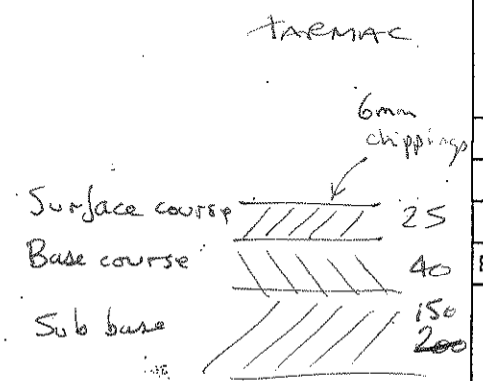 TARMAC
6mm
chippings
Surface course 25
Base course 40
Sub base 150
200